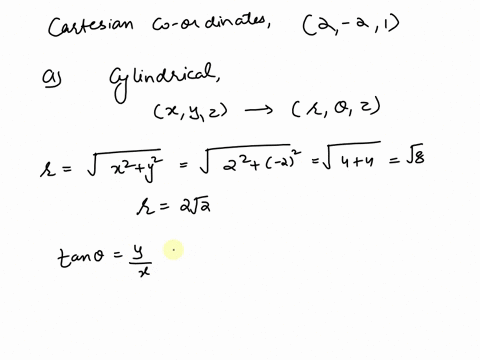 Cartesian co-ordinates, (2,-2,1)
a) Cylindrical,
(x,y,z) → (r, θ, z)
r = √x²+y² = √2²+(-2)² = √4+4 = √8
r = 2√2
tanθ = y/x